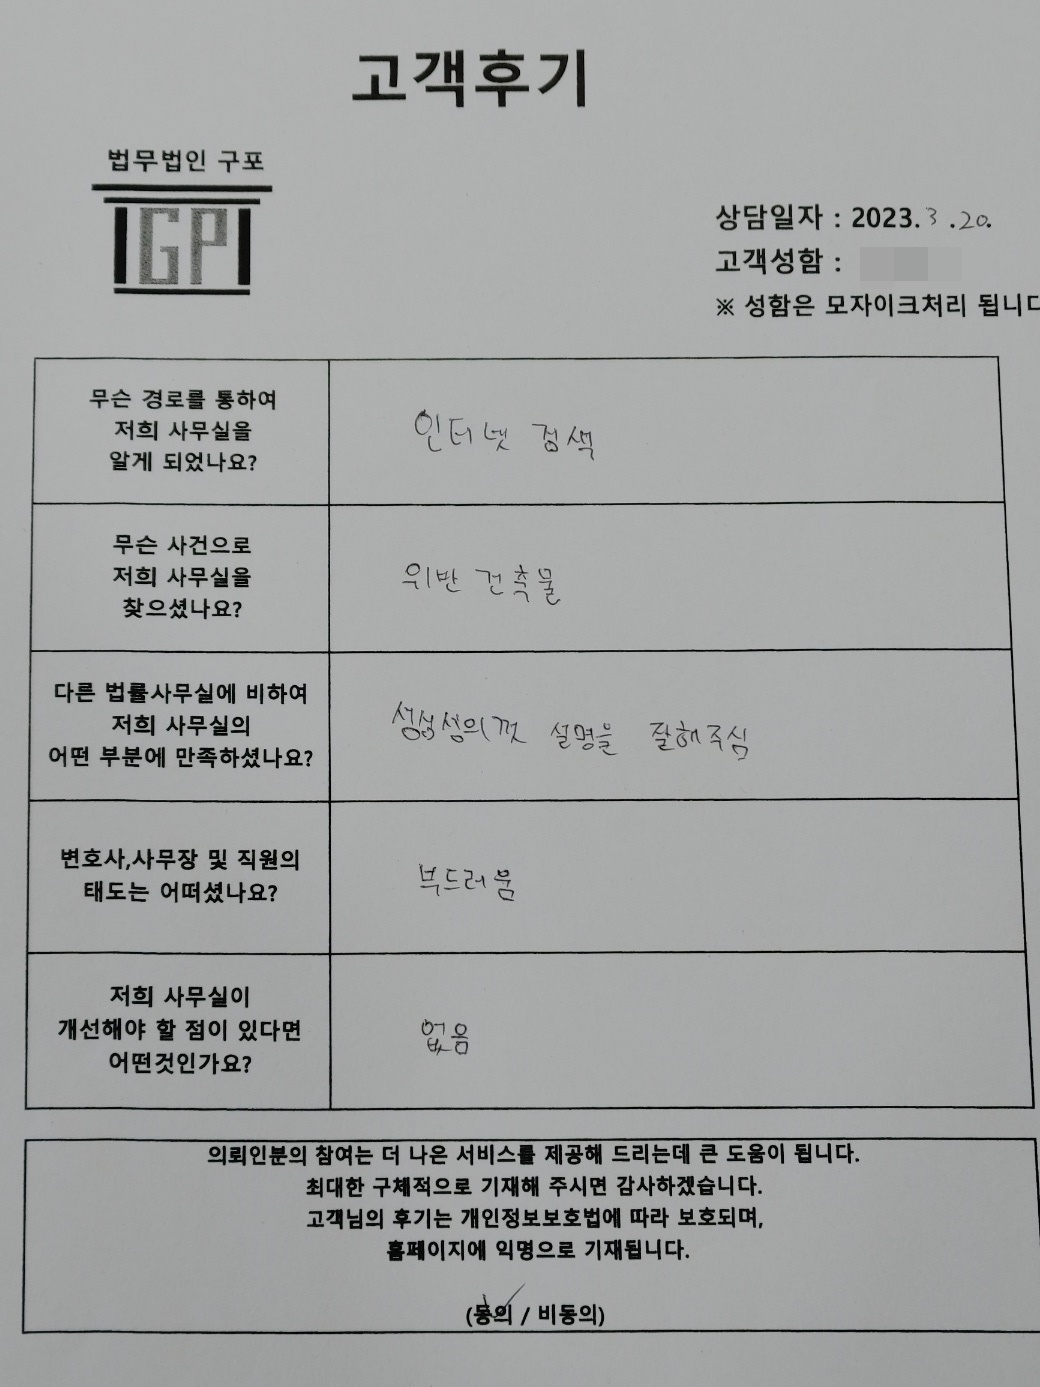 고객후기
법무법인 구포
GP
상담일자 : 2023. 3 . 20.
고객성함 :
※ 성함은 모자이크처리 됩니다
무슨 경로를 통하여
저희 사무실을
알게 되었나요?
인터넷 검색
무슨 사건으로
저희 사무실을
찾으셨나요?
위반 건축물
다른 법률사무실에 비하여
저희 사무실의
어떤 부분에 만족하셨나요?
성심성의껏 설명을 잘해주심
변호사,사무장 및 직원의
태도는 어떠셨나요?
부드러움
저희 사무실이
개선해야 할 점이 있다면
어떤것인가요?
없음
의뢰인분의 참여는 더 나은 서비스를 제공해 드리는데 큰 도움이 됩니다.
최대한 구체적으로 기재해 주시면 감사하겠습니다.
고객님의 후기는 개인정보보호법에 따라 보호되며,
홈페이지에 익명으로 기재됩니다.
(동의 / 비동의)